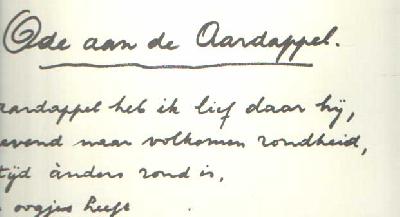 Ode aan de Aardappel.
aardappel heb ik lief daar hij,
evend naar volkomen rondheid,
tijd ànders rond is,
oogjes heeft